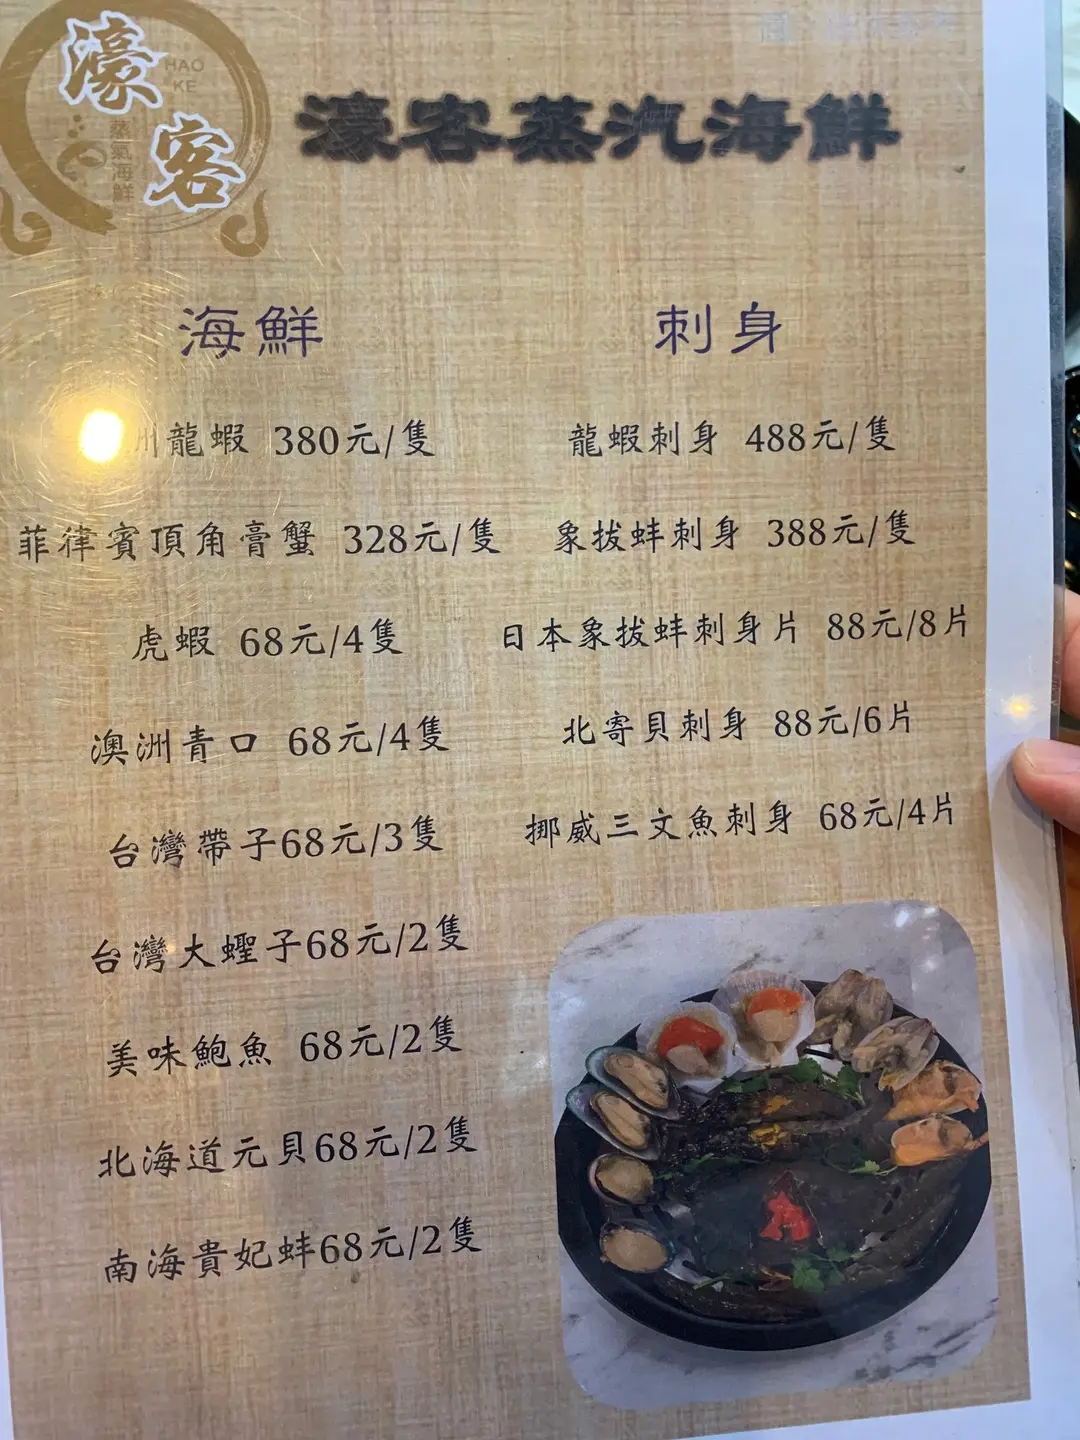 濠客
HAO
KE
蒸氣海鮮
濠客蒸汽海鮮
海鮮
洲龍蝦 380元/隻
菲律賓頂角膏蟹 328元/隻
虎蝦 68元/4隻
澳洲青口 68元/4隻
台灣帶子68元/3隻
台灣大蟶子68元/2隻
美味鮑魚 68元/2隻
北海道元貝68元/2隻
南海貴妃蚌68元/2隻
刺身
龍蝦刺身 488元/隻
象拔蚌刺身 388元/隻
日本象拔蚌刺身片 88元/8片
北寄貝刺身 88元/6片
挪威三文魚刺身 68元/4片